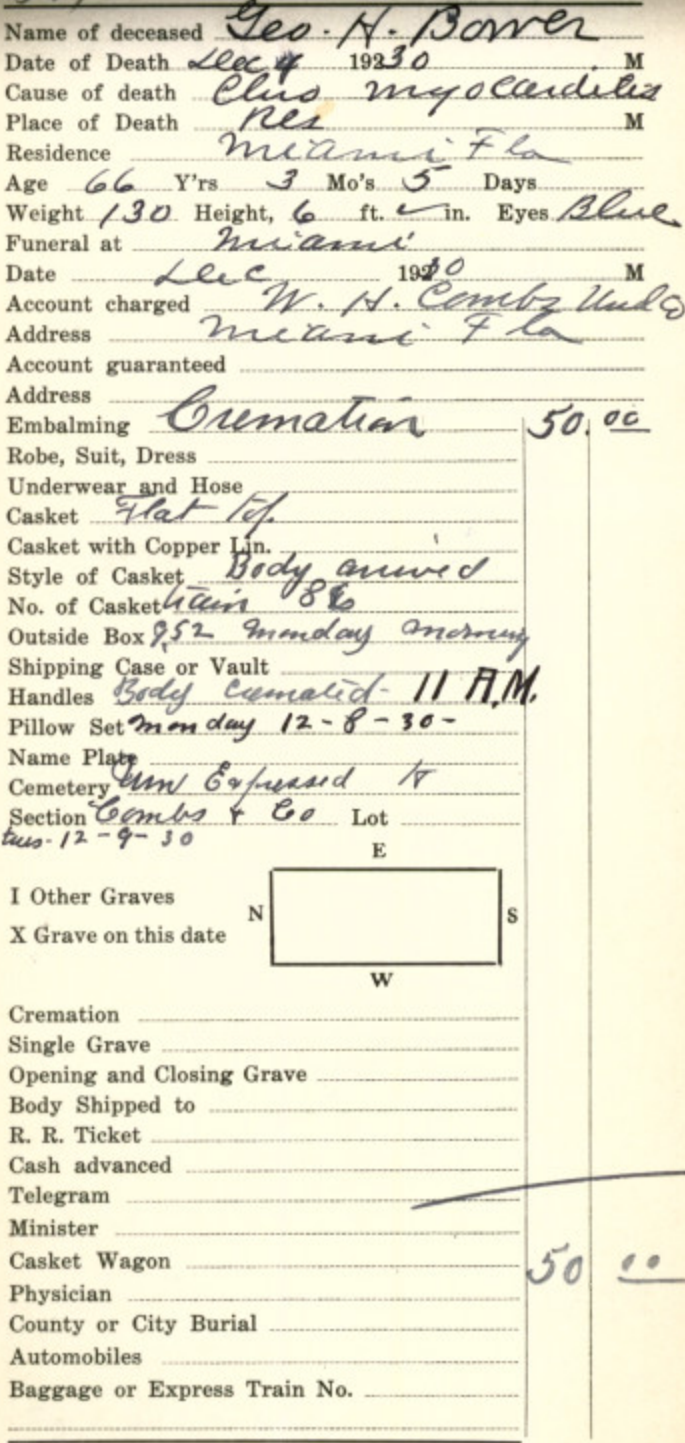 Name of deceased Geo. H. Bower
Date of Death Dec 4 19230 M
Cause of death Chro myocarditis
Place of Death Res M
Residence Miami Fla
Age 66 Y'rs 3 Mo's 5 Days
Weight 130 Height, 6 ft. in. Eyes Blue
Funeral at Miami
Date Dec 1930 M
Account charged W. H. Combs Und Co
Address Miami Fla
Account guaranteed
Address
Embalming Cremation 50.00
Robe, Suit, Dress
Underwear and Hose
Casket Flat top
Casket with Copper Lin.
Style of Casket Body arrived
No. of Casket train 86
Outside Box 9.52 monday morning
Shipping Case or Vault
Handles Body cremated - 11 A.M.
Pillow Set monday 12-8-30-
Name Plate
Cemetery Urn Expressed to
Section Combs & Co Lot
tues-12-9-30
E
I Other Graves
N S
X Grave on this date
W
Cremation
Single Grave
Opening and Closing Grave
Body Shipped to
R. R. Ticket
Cash advanced
Telegram
Minister
Casket Wagon 50 00
Physician
County or City Burial
Automobiles
Baggage or Express Train No.